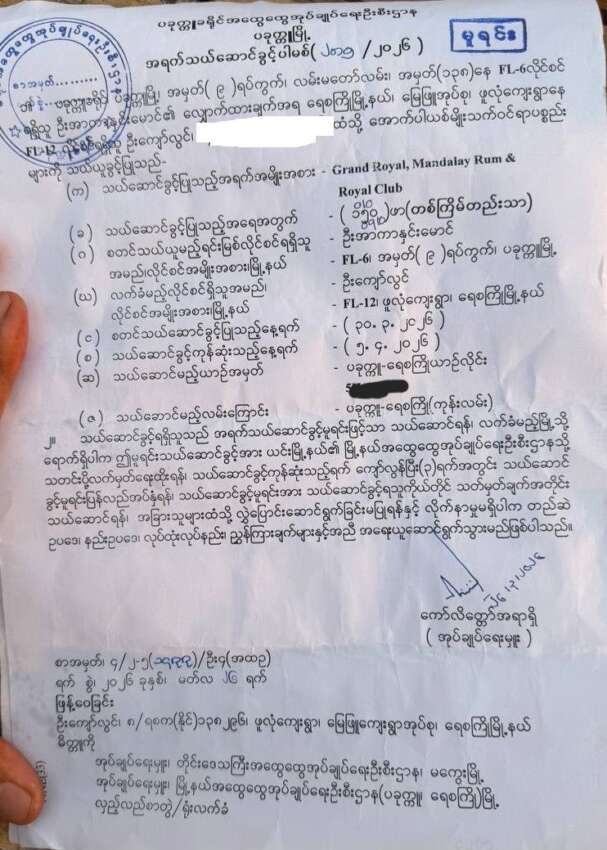 ပခုက္ကူခရိုင်အထွေထွေအုပ်ချုပ်ရေးဦးစီးဌာန
ပခုက္ကူမြို့
မူရင်း
အရက်သယ်ဆောင်ခွင့်ပါမစ်( /၂၀၂၆ )
စာအမှတ်.........
ပခုက္ကူခရိုင်၊ ပခုက္ကူမြို့၊ အမှတ်( ၉ )ရပ်ကွက်၊ လမ်းမတော်လမ်း၊ အမှတ်(၁၃၈)နေ FL-6လိုင်စင်
ရရှိသူ ဦးအာကာနှင်းမောင်၏ လျှောက်ထားချက်အရ ရေစကြိုမြို့နယ်၊ မြေဖြူအုပ်စု၊ ဖူလုံကျေးရွာနေ
FL-12 လိုင်စင်ရရှိသူ ဦးကျော်လွင်၊ ထံသို့ အောက်ပါယစ်မျိုးသက်ဝင်ရာပစ္စည်း
များကို သယ်ယူခွင့်ပြုသည်-
(က) သယ်ဆောင်ခွင့်ပြုသည့်အရက်အမျိုးအစား - Grand Royal, Mandalay Rum &
Royal Club
(ခ) သယ်ဆောင်ခွင့်ပြုသည့်အရေအတွက် - ( ၁၅၀ )ဖာ(တစ်ကြိမ်တည်းသာ)
(ဂ) စတင်သယ်ယူမည့်ရင်းမြစ်လိုင်စင်ရရှိသူ - ဦးအာကာနှင်းမောင်
အမည်၊လိုင်စင်အမျိုးအစား၊မြို့နယ် - FL-6၊ အမှတ် ( ၉ )ရပ်ကွက်၊ ပခုက္ကူမြို့
(ဃ) လက်ခံမည့်လိုင်စင်ရှိသူအမည်၊ - ဦးကျော်လွင်
လိုင်စင်အမျိုးအစား၊မြို့နယ် - FL-12၊ ဖူလုံကျေးရွာ၊ ရေစကြိုမြို့နယ်
(င) စတင်သယ်ဆောင်ခွင့်ပြုသည့်နေ့ရက် - ( ၃၀. ၃. ၂၀၂၆ )
(စ) သယ်ဆောင်ခွင့်ကုန်ဆုံးသည့်နေ့ရက် - ( ၅. ၄. ၂၀၂၆ )
(ဆ) သယ်ဆောင်မည့်ယာဉ်အမှတ် - ပခုက္ကူ-ရေစကြိုယာဉ်လိုင်း
(ဇ) သယ်ဆောင်မည့်လမ်းကြောင်း - ပခုက္ကူ-ရေစကြို(ကုန်းလမ်း)
၂။ သယ်ဆောင်ခွင့်ရရှိသူသည် အရက်သယ်ဆောင်ခွင့်မူရင်းဖြင့်သာ သယ်ဆောင်ရန်၊ လက်ခံမည့်မြို့သို့
ရောက်ရှိပါက ဤမူရင်းသယ်ဆောင်ခွင့်အား ယင်းမြို့နယ်၏ မြို့နယ်အထွေထွေအုပ်ချုပ်ရေးဦးစီးဌာနသို့
သတင်းပို့လက်မှတ်ရေးထိုးရန်၊ သယ်ဆောင်ခွင့်ကုန်ဆုံးသည့်ရက် ကျော်လွန်ပြီး(၃)ရက်အတွင်း သယ်ဆောင်
ခွင့်မူရင်းပြန်လည်အပ်နှံရန်၊ သယ်ဆောင်ခွင့်မူရင်းအား သယ်ဆောင်ခွင့်ရသူကိုယ်တိုင် သတ်မှတ်ချက်အတိုင်း
သယ်ဆောင်ရန်၊ အခြားသူများထံသို့ လွှဲပြောင်းဆောင်ရွက်ခြင်းမပြုရန်နှင့် လိုက်နာမှုမရှိပါက တည်ဆဲ
ဥပဒေ၊ နည်းဥပဒေ၊ လုပ်ထုံးလုပ်နည်း၊ ညွှန်ကြားချက်များနှင့်အညီ အရေးယူဆောင်ရွက်သွားမည်ဖြစ်ပါသည်။
၂၆.၃.၂၀၂၆
ကော်လိတ္တော်အရာရှိ
( အုပ်ချုပ်ရေးမှူး )
စာအမှတ်၊ ၄/၂-၅( )/ဦး၄(အထဥ)
ရက် စွဲ၊ ၂၀၂၆ ခုနှစ်၊ မတ်လ ၂၆ ရက်
ဖြန့်ဝေခြင်း
ဦးကျော်လွင်၊ ၈/ရစက(နိုင်)၁၃၈၂၉၆၊ ဖူလုံကျေးရွာ၊ မြေဖြူကျေးရွာအုပ်စု၊ ရေစကြိုမြို့နယ်
မိတ္တူကို
အုပ်ချုပ်ရေးမှူး၊ တိုင်းဒေသကြီးအထွေထွေအုပ်ချုပ်ရေးဦးစီးဌာန၊ မကွေးမြို့
အုပ်ချုပ်ရေးမှူး၊ မြို့နယ်အထွေထွေအုပ်ချုပ်ရေးဦးစီးဌာန(ပခုက္ကူ၊ ရေစကြို)မြို့
လှည့်လည်စာတွဲ/ရုံးလက်ခံ